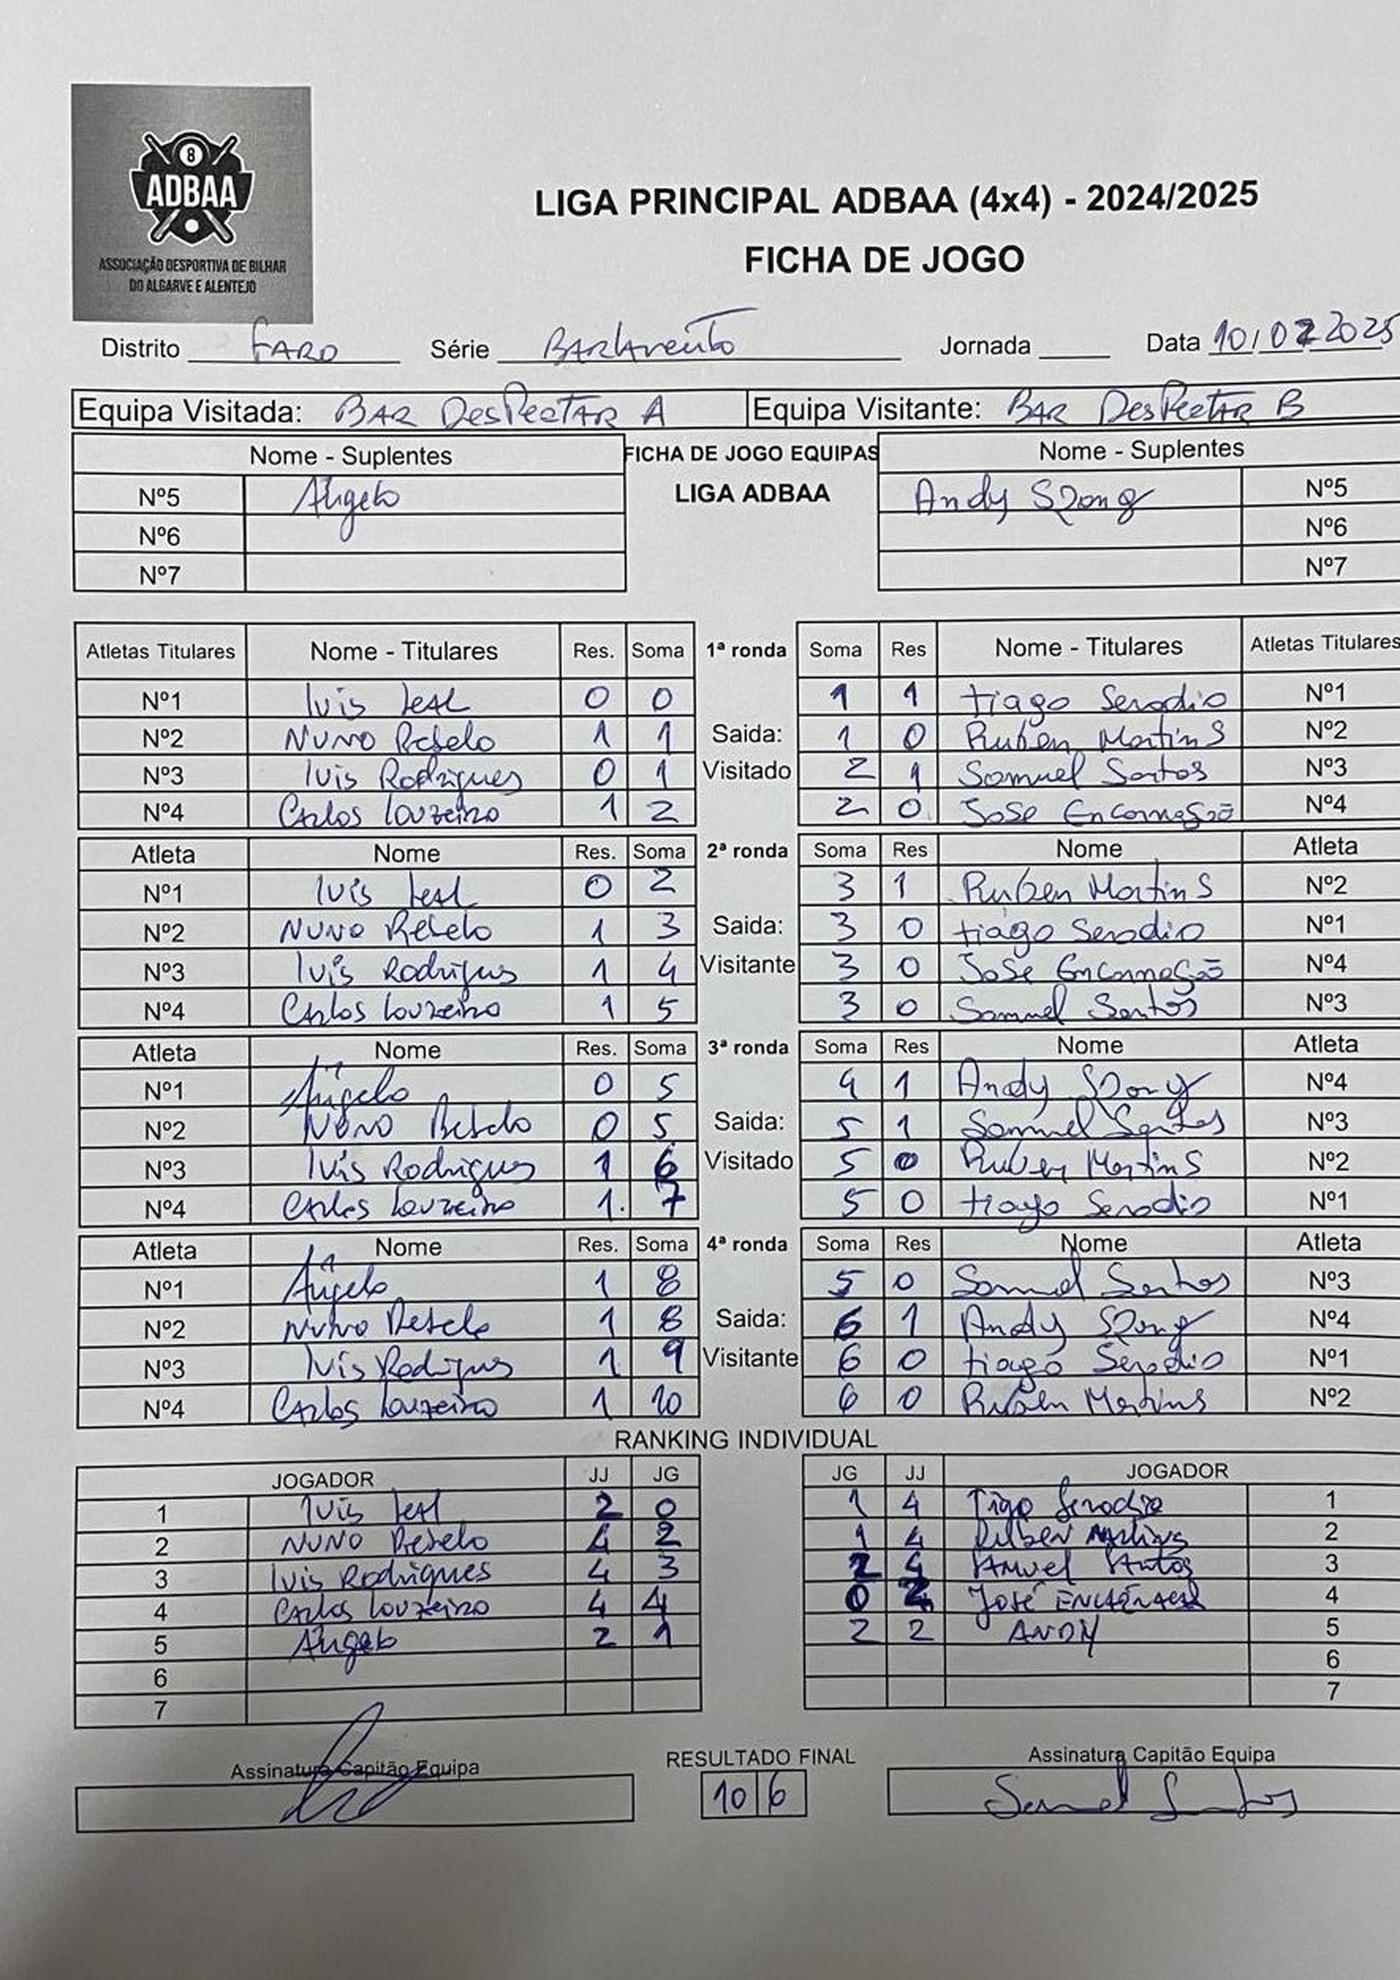 8
ADBAA
ASSOCIAÇÃO DESPORTIVA DE BILHAR
DO ALGARVE E ALENTEJO
LIGA PRINCIPAL ADBAA (4x4) - 2024/2025
FICHA DE JOGO
Distrito FARO Série BARLAVENTO Jornada Data 10/02 2025
Equipa Visitada: BAR DESPECTAR A Equipa Visitante: BAR DESPECTAR B
Nome - Suplentes FICHA DE JOGO EQUIPAS Nome - Suplentes
Nº5 Ângelo LIGA ADBAA Andy Spong Nº5
Nº6 Nº6
Nº7 Nº7
Atletas Titulares Nome - Titulares Res. Soma 1ª ronda Soma Res Nome - Titulares Atletas Titulares
Nº1 luís leal 0 0 1 1 tiago Serodio Nº1
Nº2 NUNO Rebelo 1 1 Saida: 1 0 Ruben Martins Nº2
Nº3 luís Rodrigues 0 1 Visitado 2 1 Samuel Santos Nº3
Nº4 Carlos louzeiro 1 2 2 0 José Encarnação Nº4
Atleta Nome Res. Soma 2ª ronda Soma Res Nome Atleta
Nº1 luís leal 0 2 3 1 Ruben Martins Nº2
Nº2 NUNO Rebelo 1 3 Saida: 3 0 tiago Serodio Nº1
Nº3 luís Rodrigues 1 4 Visitante 3 0 José Encarnação Nº4
Nº4 Carlos louzeiro 1 5 3 0 Samuel Santos Nº3
Atleta Nome Res. Soma 3ª ronda Soma Res Nome Atleta
Nº1 Ângelo 0 5 4 1 Andy Spong Nº4
Nº2 NUNO Rebelo 0 5 Saida: 5 1 Samuel Santos Nº3
Nº3 luís Rodrigues 1 6 Visitado 5 0 Ruben Martins Nº2
Nº4 Carlos louzeiro 1. 7 5 0 tiago Serodio Nº1
Atleta Nome Res. Soma 4ª ronda Soma Res Nome Atleta
Nº1 Ângelo 1 8 5 0 Samuel Santos Nº3
Nº2 NUNO Rebelo 1 8 Saida: 6 1 Andy Spong Nº4
Nº3 luís Rodrigues 1 9 Visitante 6 0 tiago Serodio Nº1
Nº4 Carlos louzeiro 1 10 6 0 Ruben Martins Nº2
RANKING INDIVIDUAL
JOGADOR JJ JG JG JJ JOGADOR
1 luís leal 2 0 1 4 Tigo Serodio 1
2 NUNO Rebelo 4 2 1 4 Ruben Martins 2
3 luis Rodrigues 4 3 2 4 Samuel Santos 3
4 Carlos louzeiro 4 4 0 2 José 4
5 Angelo 2 1 2 2 ANDY 5
6 6
7 7
Assinatura Capitão Equipa RESULTADO FINAL Assinatura Capitão Equipa
10 6 Samuel Santos